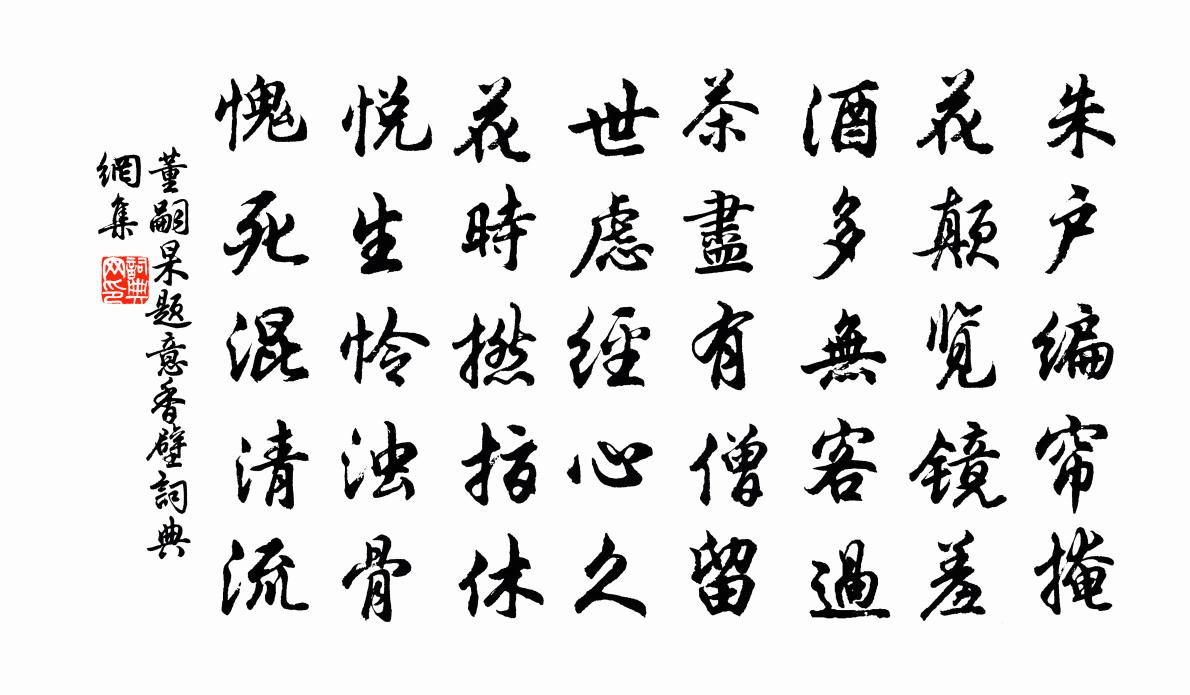 朱户编帘掩
花颠览镜羞
酒多無客過
茶盡有僧留
世虑經心久
花時撚指休
悦生怜浊骨
愧死混清流
董嗣杲题意香壁詞典
網集
詞典
网印